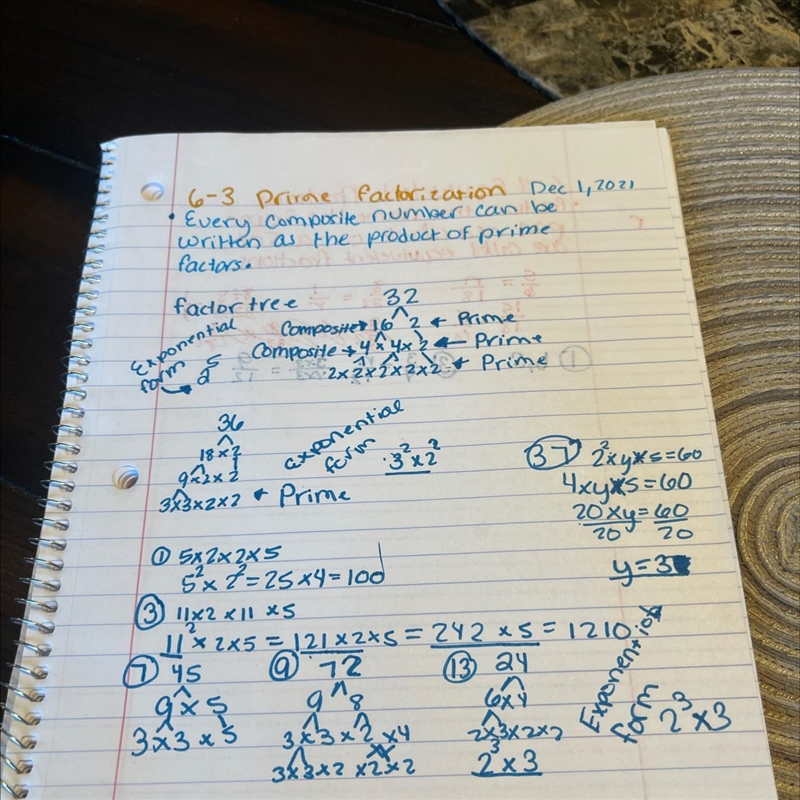 6-3 Prime Factorization Dec 1, 2021
• Every composite number can be
written as the product of prime
factors.
factor tree 32
Composite → 16 2 ← Prime
Composite → 4 x 4 x 2 ← Prime
2x2x2x2x2 ← Prime
Exponential
form
2⁵
36
18 x 2
9x2x2
3x3x2x2 ← Prime
exponential
form
3² x 2²
37 2² x y x 5 = 60
4xyx5 = 60
20 x y = 60
20 20
y = 3
① 5x2x2x5
5² x 2² = 25 x 4 = 100
③ 11x2x11 x5
11² x 2x5 = 121x2x5 = 242 x 5 = 1210
⑦ 45
9 x 5
3x3 x 5
⑨ 72
9 8
3x3x2 x4
3x3x2 x2x2
⑬ 24
6x4
2x3x2x2
2³ x 3
Exponential
form 2³ x 3